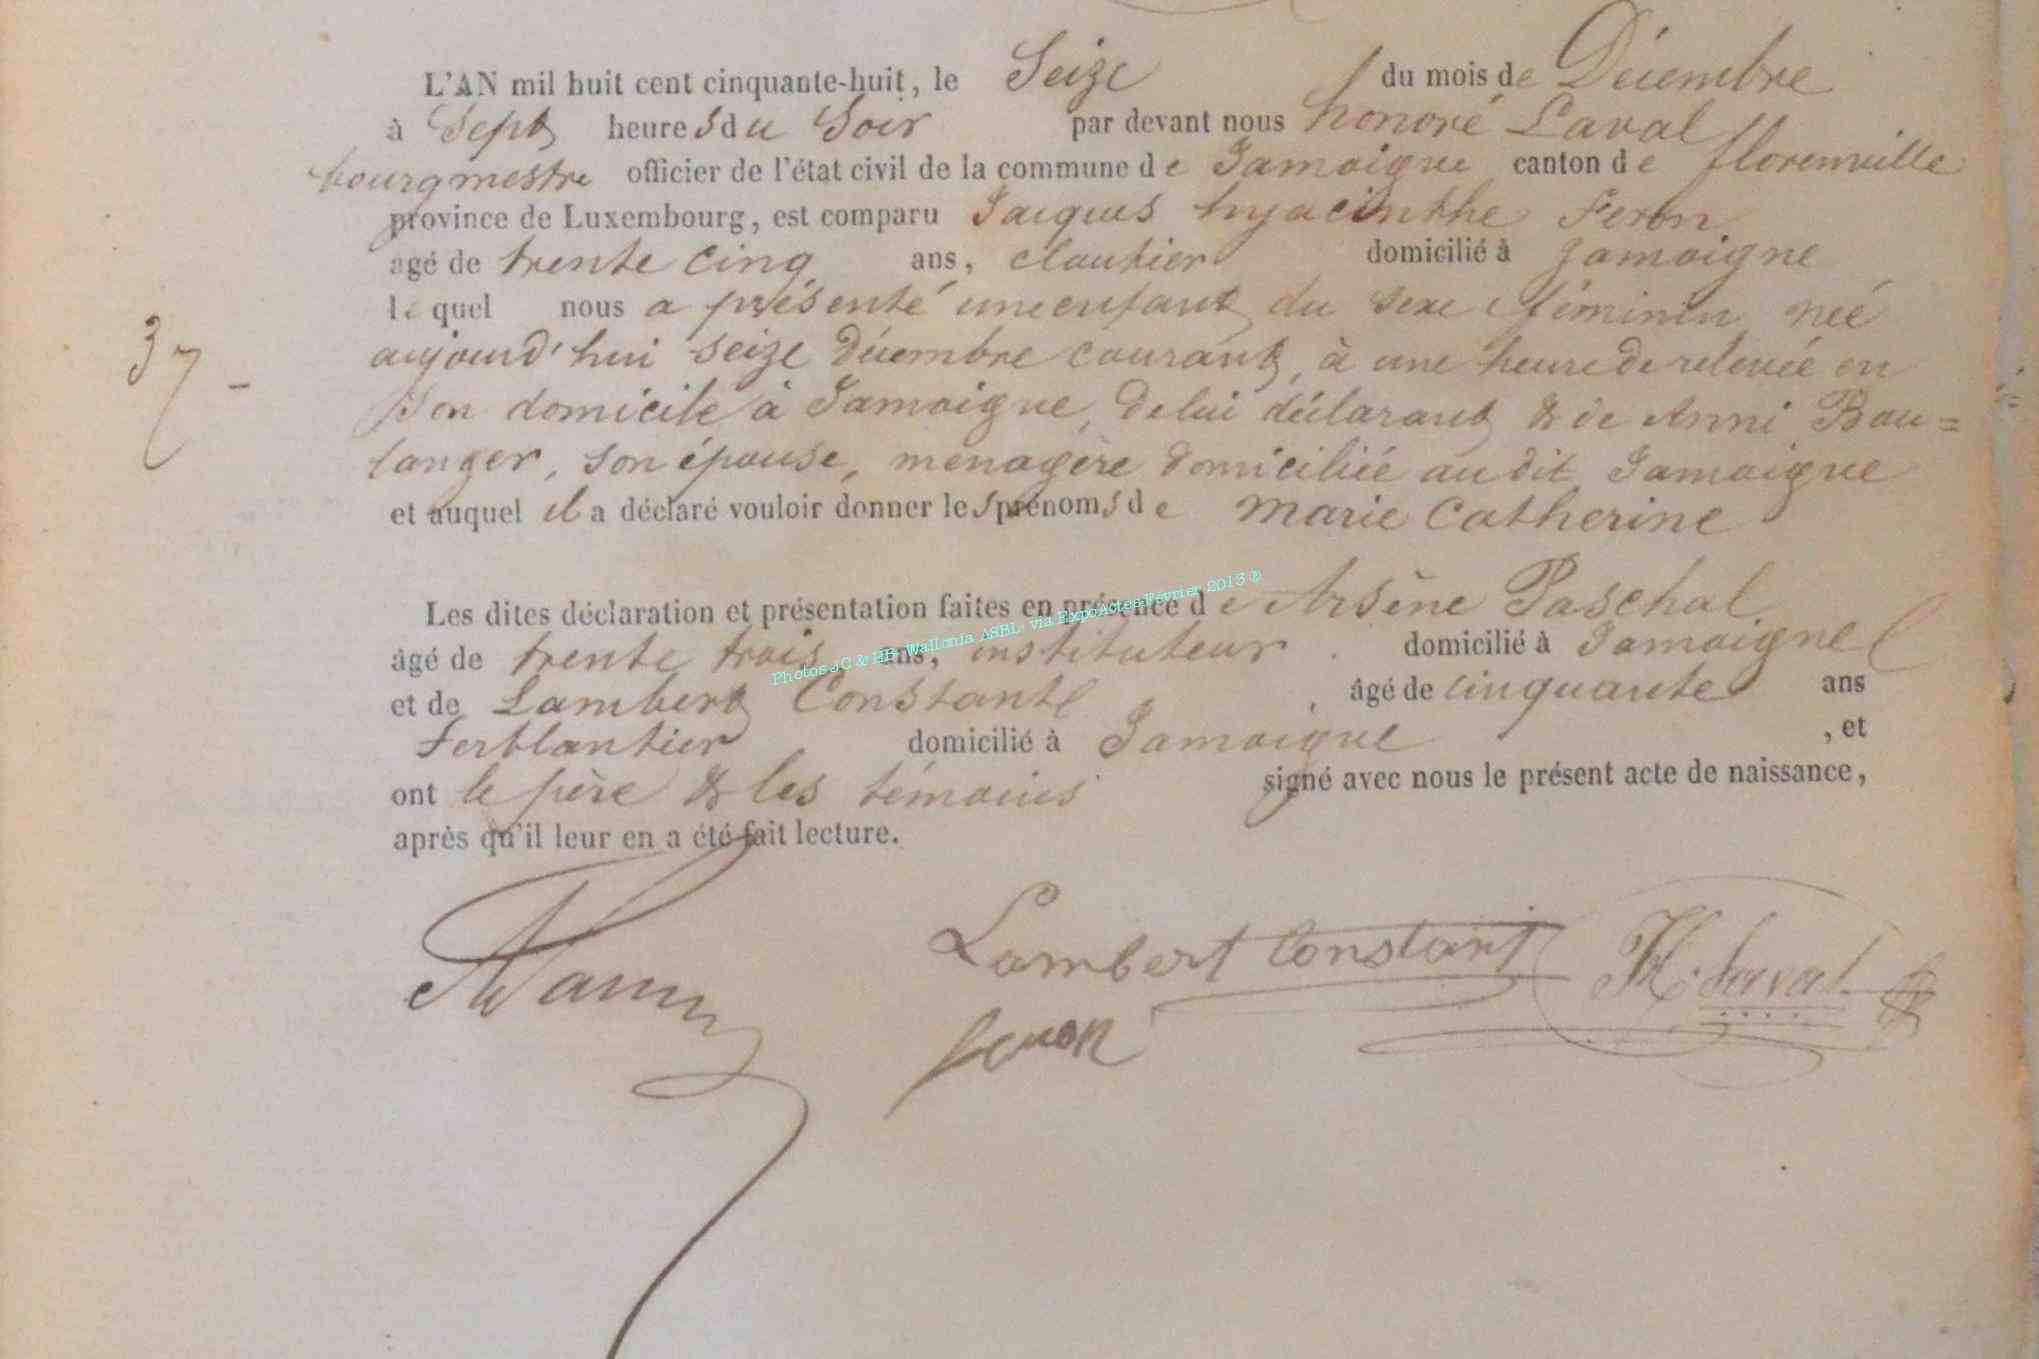 L'AN mil huit cent cinquante-huit, le Seize du mois de Décembre
à Sept heures du Soir par devant nous honoré Laval
bourgmestre officier de l'état civil de la commune de Jamoigne canton de florenville
province de Luxembourg, est comparu Jacques hyacinthe Feron
agé de trente cinq ans, cloutier domicilié à Jamoigne
lequel nous a présenté une enfant du sexe féminin née
37 -
aujourd'hui seize Décembre courant, à une heure de relevée en
son domicile à Jamoigne, de lui déclarant & de Anne Bou=
langer, son épouse, ménagère domiciliée au dit Jamoigne
et auquel il a déclaré vouloir donner les prénoms de Marie Catherine
Les dites déclaration et présentation faites en présence de Arsène Paschal
Photos JC & HB Wallonia ASBL via ExpoActes Février 2013 ©
âgé de trente trois ans, instituteur domicilié à Jamoigne
et de Lambert Constant , âgé de cinquante ans
Ferblantier domicilié à Jamoigne , et
ont le père & les témoins signé avec nous le présent acte de naissance,
après qu'il leur en a été fait lecture.
Lambert Constant
feron